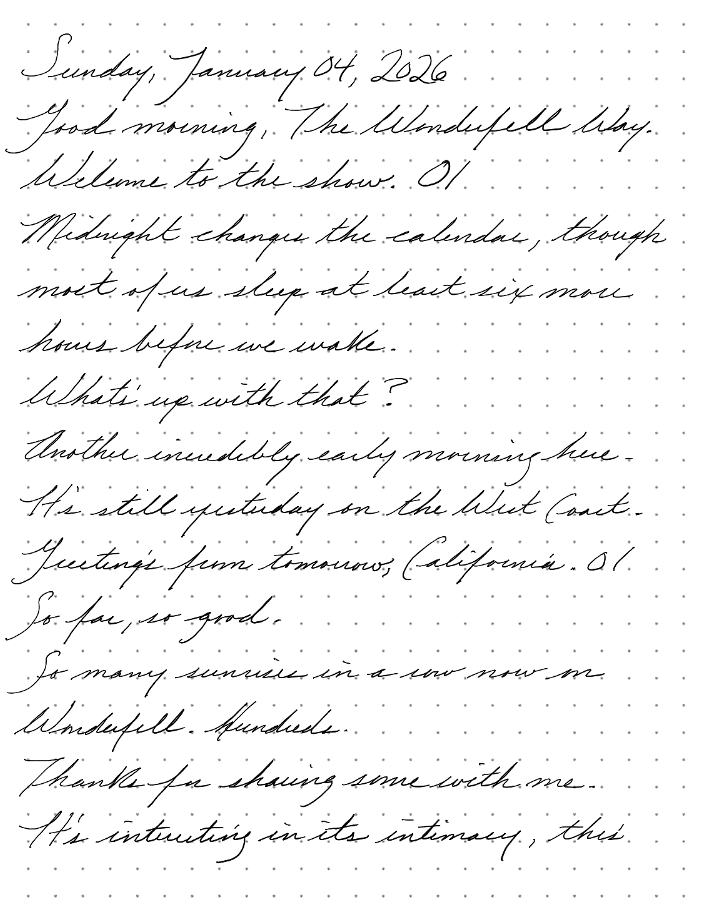 Sunday, January 04, 2026
Good morning, The Wonderfell Way.
Welcome to the show. 01
Midnight changes the calendar, though
most of us sleep at least six more
hours before we wake.
What's up with that?
Another incredibly early morning here.
It's still yesterday on the West Coast.
Greetings from tomorrow, California. 01
So far, so good.
So many sunrises in a row now on
Wonderfell. Hundreds.
Thanks for sharing some with me.
It's interesting in its intimacy, this